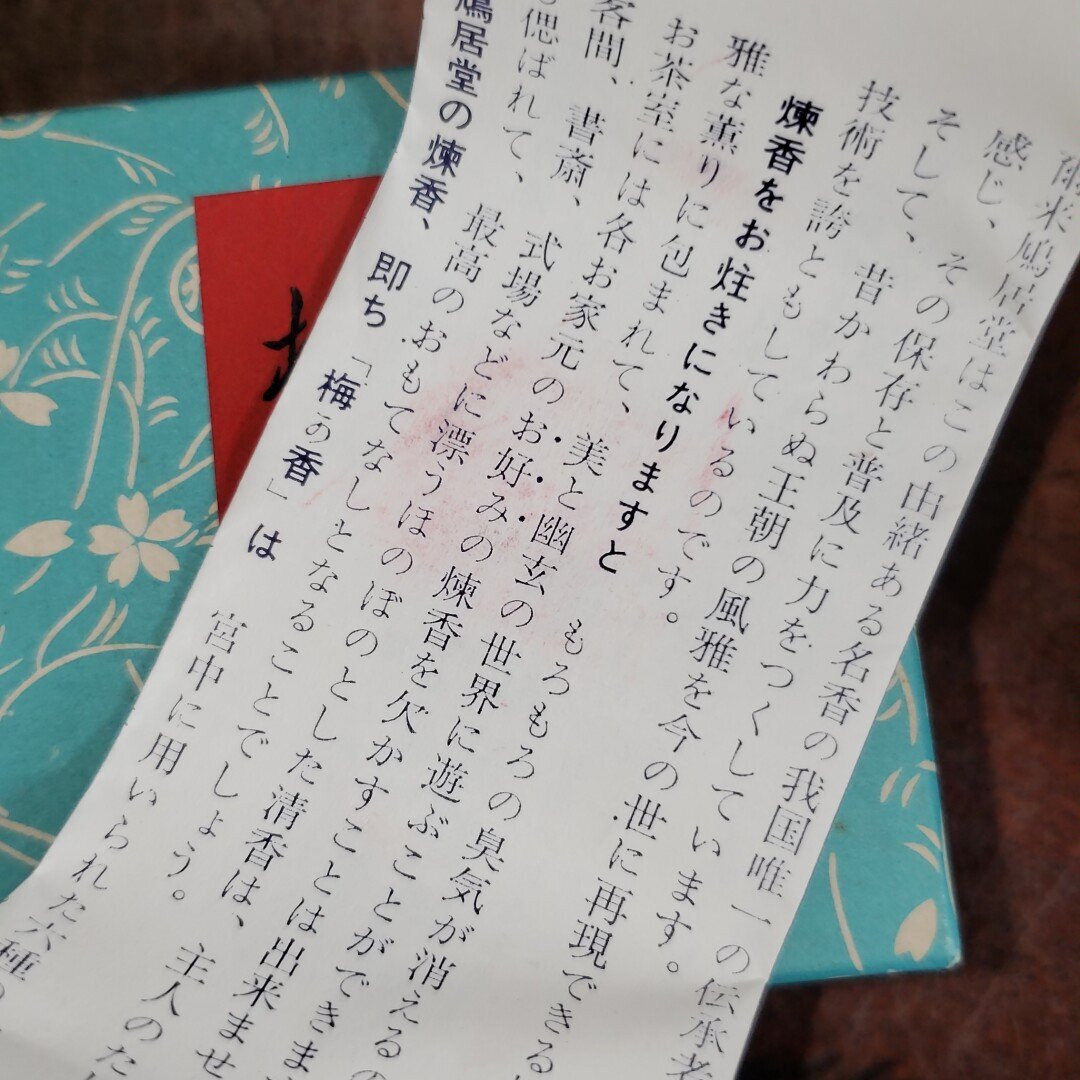 爾来鳩居堂はこの由緒ある名香の我国唯一の伝承者
感じ、その保存と普及に力をつくしています。
そして、昔かわらぬ王朝の風雅を今の世に再現できる
技術を誇ともしているのです。
煉香をお炷きになりますと もろもろの臭気が消えるの
雅な薫りに包まれて、美と幽玄の世界に遊ぶことができま
お茶室には各お家元のお好みの煉香を欠かすことは出来ませ
客間、書斎、式場などに漂うほのぼのとした清香は、主人のた
も偲ばれて、最高のおもてなしとなることでしょう。
鳩居堂の煉香、即ち「梅の香」は 宮中に用いられた六種の